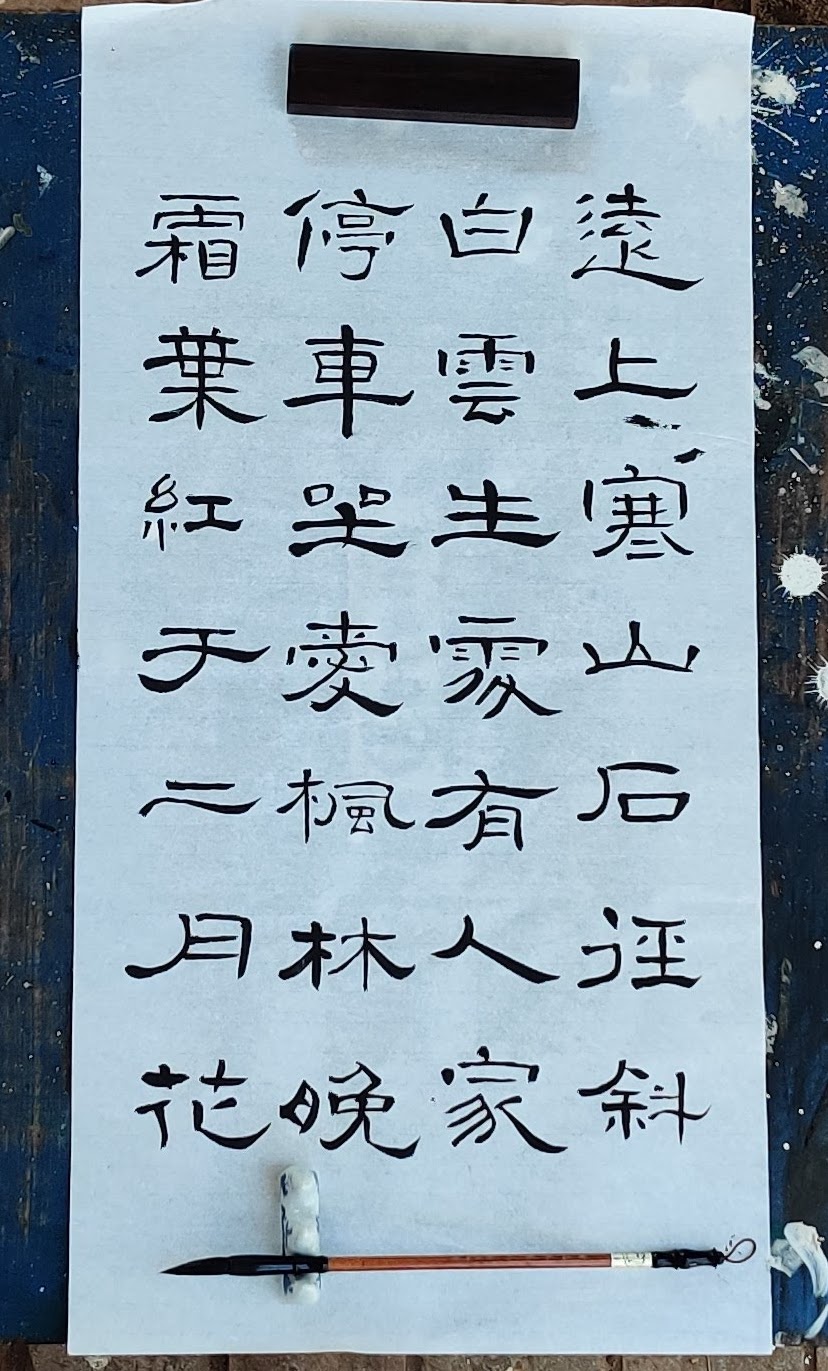 遠上寒山石徑斜
白雲生處有人家
停車坐愛楓林晚
霜葉紅于二月花